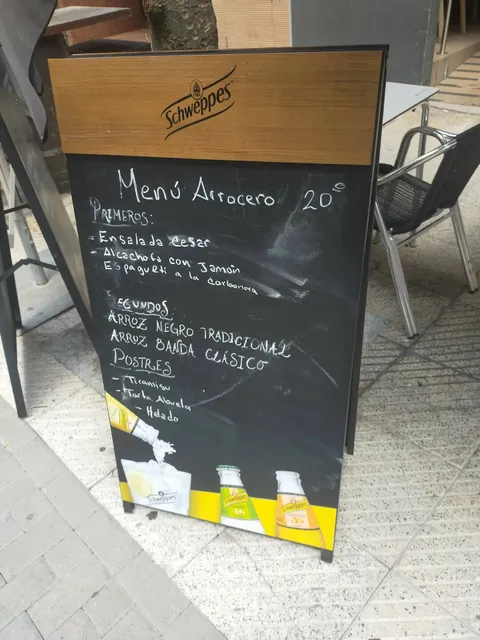 Schweppes
Menú Arrocero 20€
PRIMEROS:
- Ensalada cesar
- Alcachofa con Jamón
Espagueti a la carbonara
SEGUNDOS
ARROZ NEGRO TRADICIONAL
ARROZ BANDA CLÁSICO
POSTRES
- Tiramisu
- Tarta Abuela
- Helado
Schweppes
Schweppes
Schweppes